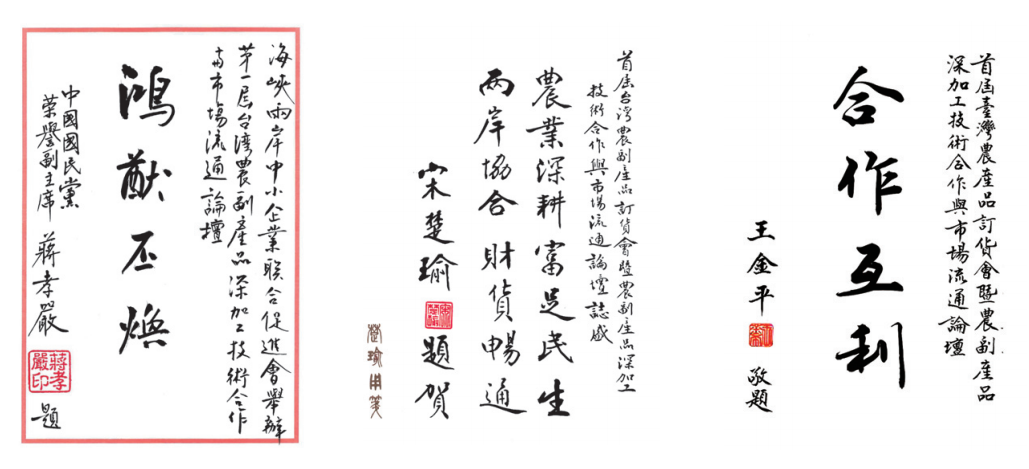 首屆臺灣農產品訂貨會暨農副產品
深加工技術合作與市場流通論壇
合作互利
王金平 敬題
首屆台灣農副產品訂貨會暨農副產品深加工
技術合作與市場流通論壇誌盛
農業深耕富足民生
兩岸協合財貨暢通
宋楚瑜 題賀
楚瑜用箋
海峽兩岸中小企業联合促進會舉辦
第一屆台湾農副產品深加工技術合作
與市場流通論壇
鴻猷丕煥
中國國民黨
榮譽副主席 蔣孝嚴 題
蔣孝嚴印